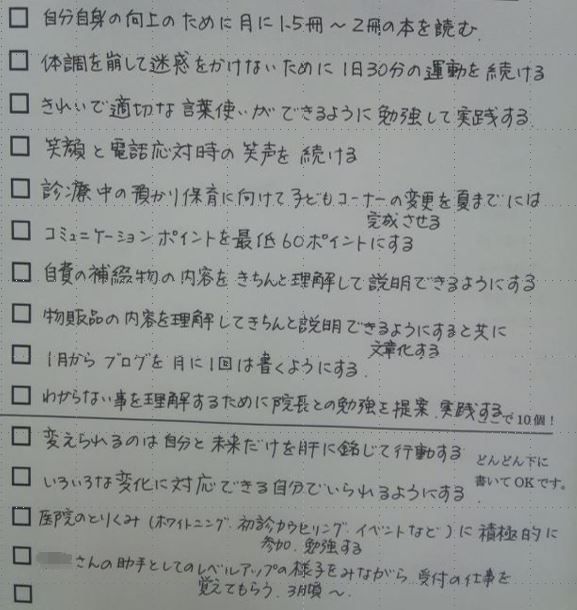 自分自身の向上のために月に1.5冊～2冊の本を読む
体調を崩して迷惑をかけないために1日30分の運動を続ける
きれいで適切な言葉使いができるように勉強して実践する
笑顔と電話応対時の笑声を続ける
診療中の預かり保育に向けて子どもコーナーの変更を夏までには
完成させる
コミュニケーションポイントを最低60ポイントにする
自費の補綴物の内容をきちんと理解して説明できるようにする
物販品の内容を理解してきちんと説明できるようにすると共に
文章化する
1月からブログを月に1回は書くようにする.
わからない事を理解するために院長との勉強を提案.実践する
ここで10個！
変えられるのは自分と未来だけを肝に銘じて行動する
どんどん下に
書いてOKです。
いろいろな変化に対応できる自分でいられるようにする
医院のとりくみ(ホワイトニング.初診カウセリング.イベントなど)に積極的に
参加.勉強する
さんの助手としてのレベルアップの様子をみながら受付の仕事を
覚えてもらう.3月頃～